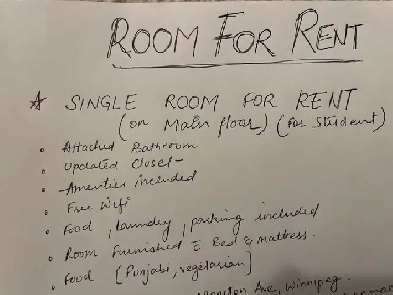 ROOM FOR RENT
★ SINGLE ROOM FOR RENT
(on Main floor) (for Student)
• Attached Bathroom
• Updated Closet -
• Amenties included
• Free Wifi
• Food, laundry, parking included
• Room Furnished c̄ Bed & Mattress.
• Food [Punjabi, vegetarian]
Ave, Winnipeg.